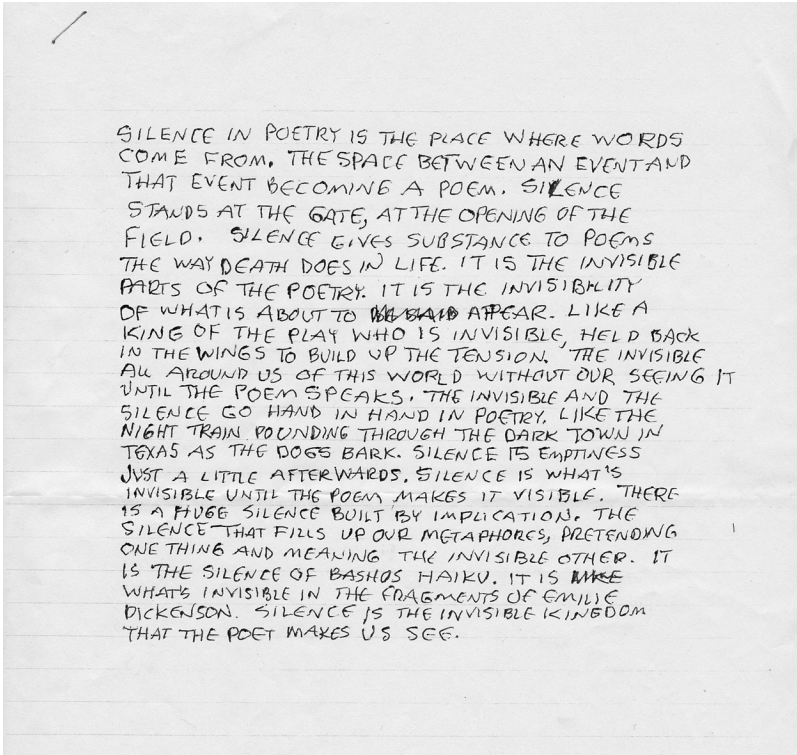 SILENCE IN POETRY IS THE PLACE WHERE WORDS
COME FROM. THE SPACE BETWEEN AN EVENT AND
THAT EVENT BECOMING A POEM. SILENCE
STANDS AT THE GATE, AT THE OPENING OF THE
FIELD. SILENCE GIVES SUBSTANCE TO POEMS
THE WAY DEATH DOES IN LIFE. IT IS THE INVISIBLE
PARTS OF THE POETRY. IT IS THE INVISIBILITY
OF WHAT IS ABOUT TO BE SAID APPEAR. LIKE A
KING OF THE PLAY WHO IS INVISIBLE, HELD BACK
IN THE WINGS TO BUILD UP THE TENSION. THE INVISIBLE
ALL AROUND US OF THIS WORLD WITHOUT OUR SEEING IT
UNTIL THE POEM SPEAKS. THE INVISIBLE AND THE
SILENCE GO HAND IN HAND IN POETRY. LIKE THE
NIGHT TRAIN POUNDING THROUGH THE DARK TOWN IN
TEXAS AS THE DOGS BARK. SILENCE IS EMPTINESS
JUST A LITTLE AFTERWARDS. SILENCE IS WHAT'S
INVISIBLE UNTIL THE POEM MAKES IT VISIBLE. THERE
IS A HUGE SILENCE BUILT BY IMPLICATION. THE
SILENCE THAT FILLS UP OUR METAPHORES, PRETENDING
ONE THING AND MEANING THE INVISIBLE OTHER. IT
IS THE SILENCE OF BASHOS HAIKU. IT IS LIKE
WHAT'S INVISIBLE IN THE FRAGMENTS OF EMILIE
DICKENSON. SILENCE IS THE INVISIBLE KINGDOM
THAT THE POET MAKES US SEE.